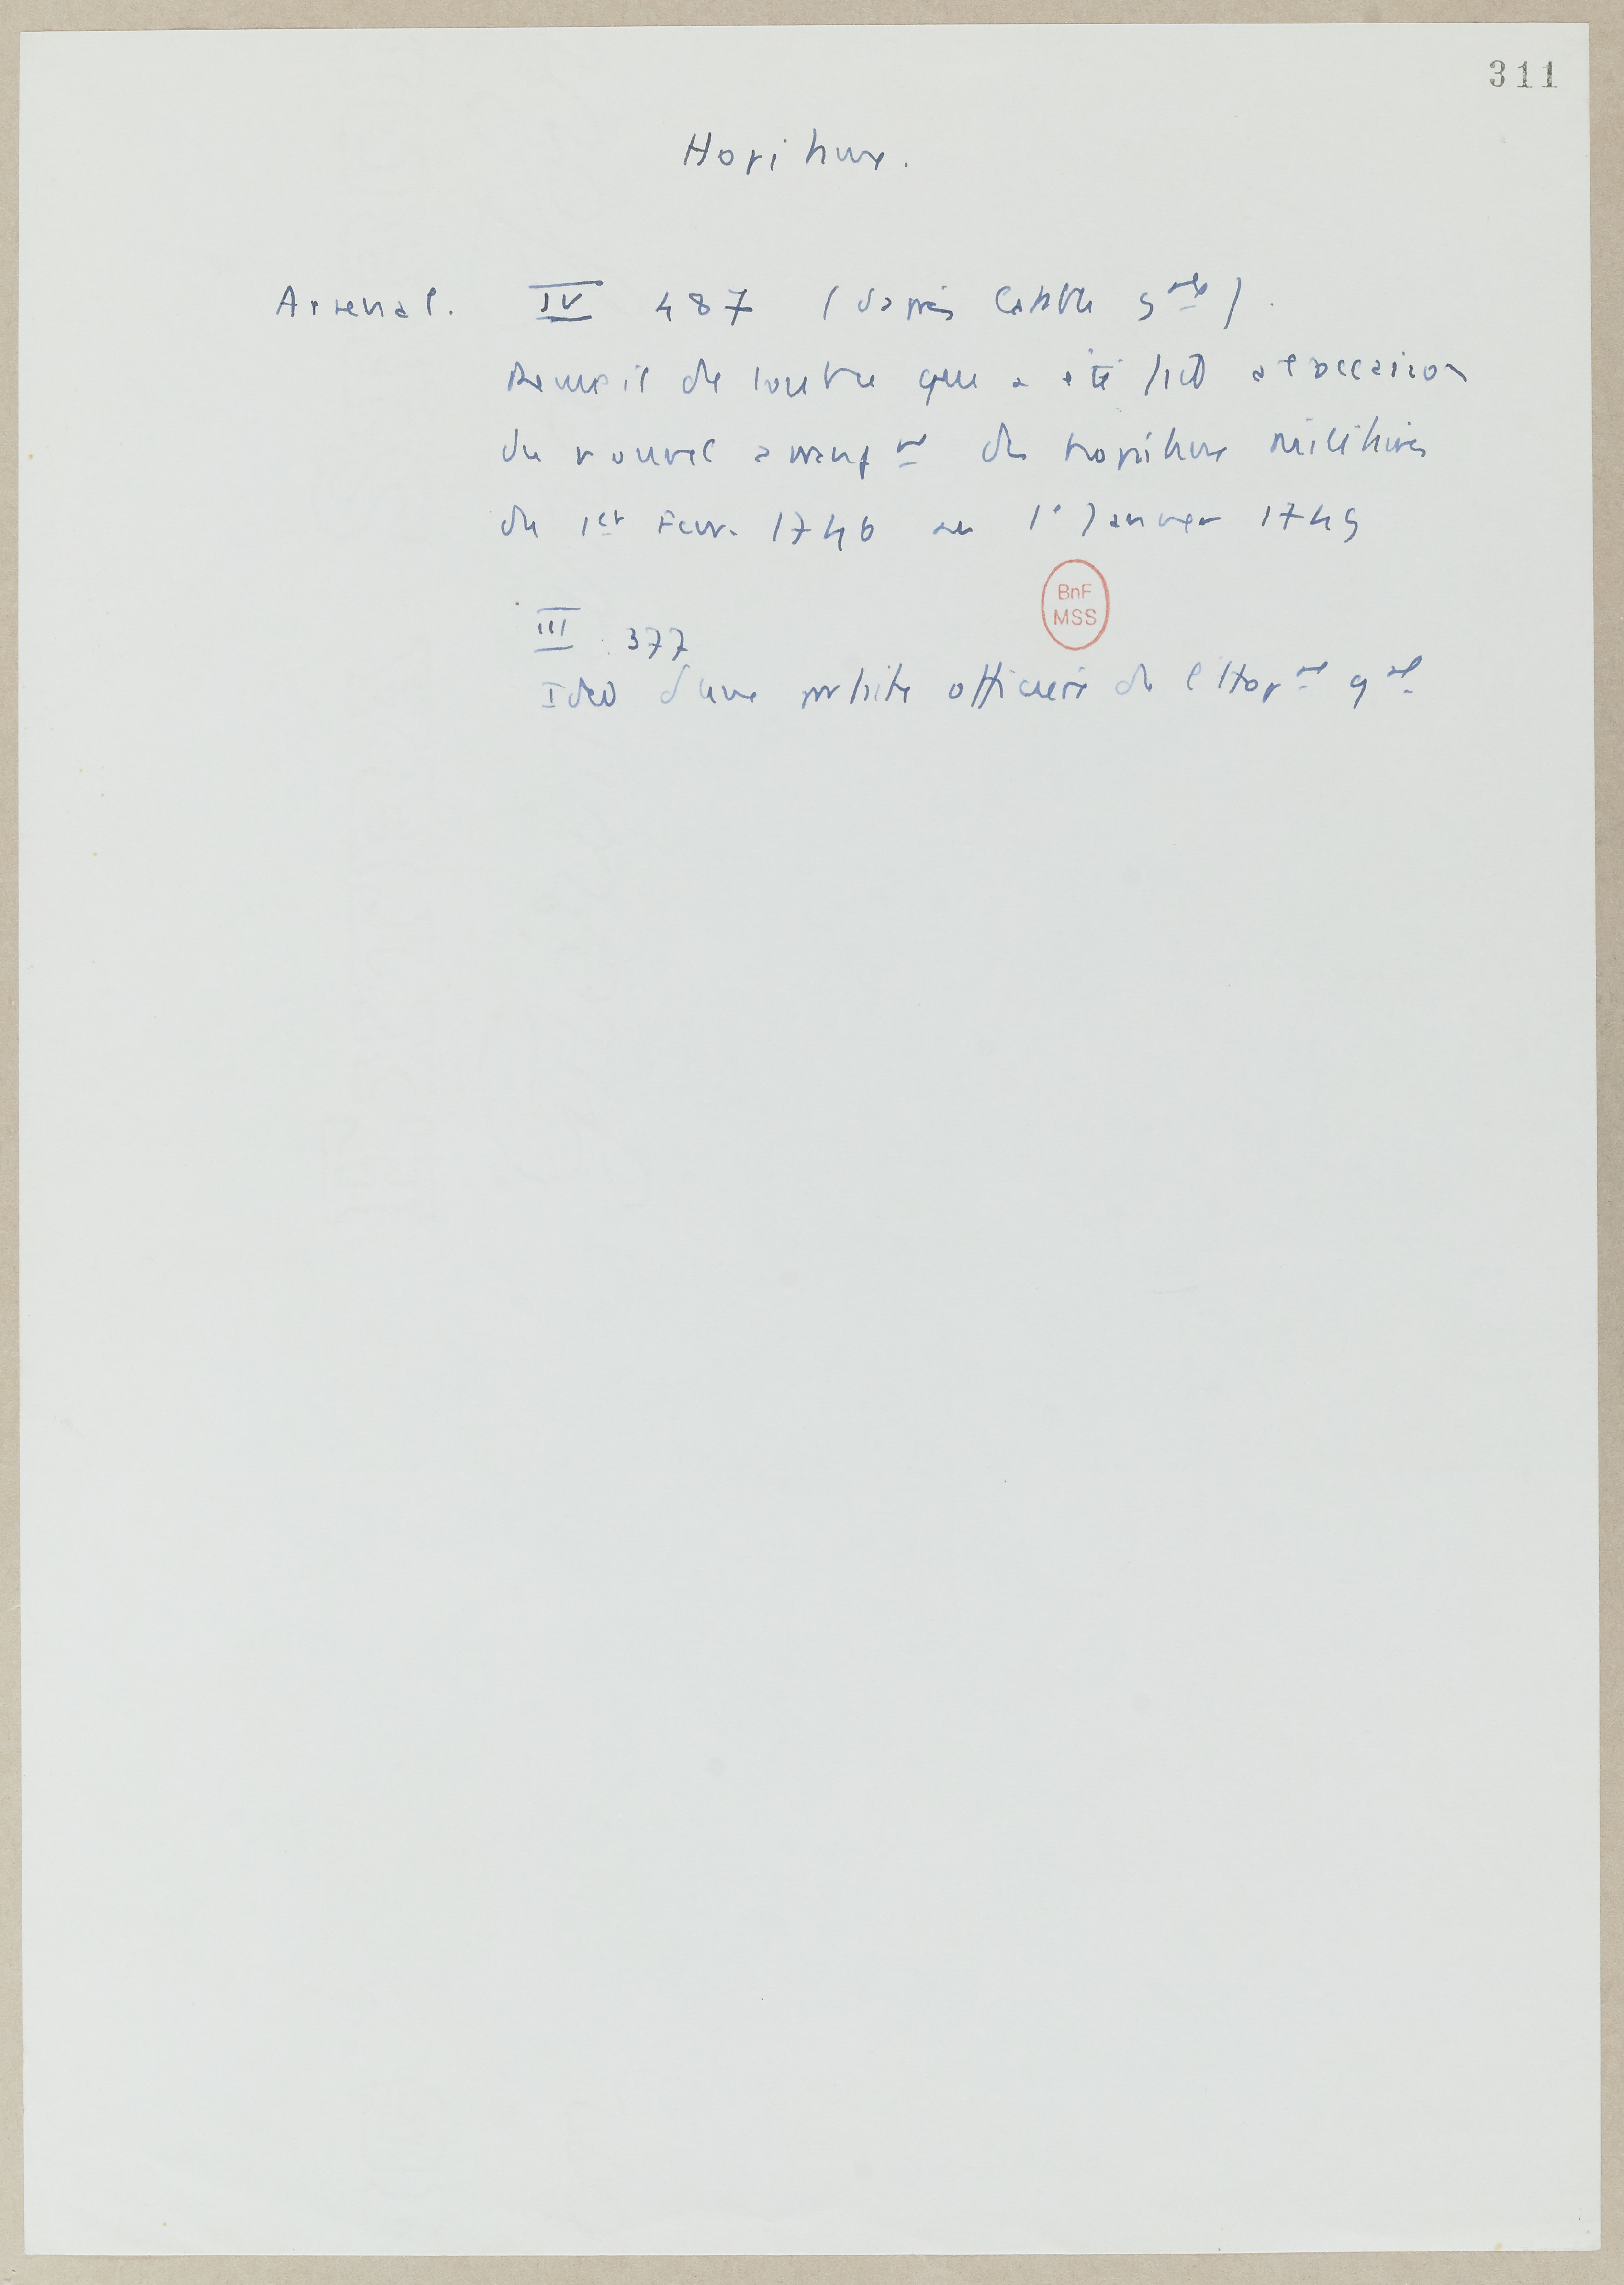 311
Hopitaux.
Arsenal. IV 487 (d'après Catalo gale).
Recueil de tout ce qui a été fait a l'occasion
du nouvel arrangt des hopitaux militaires
du 1er Fevr. 1746 au 1° Janvier 1749
BnF
MSS
III. 377
Idée d'une visite officière de l'Hopal gal